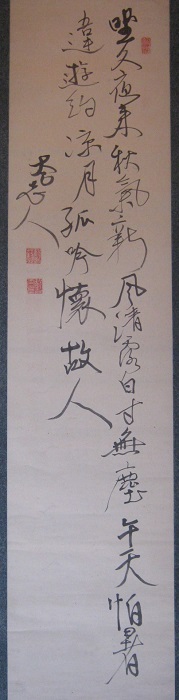 坐久夜来秋氣新風清露白寸無塵午天怕暑
違遊約凉月孤吟懷故人
人